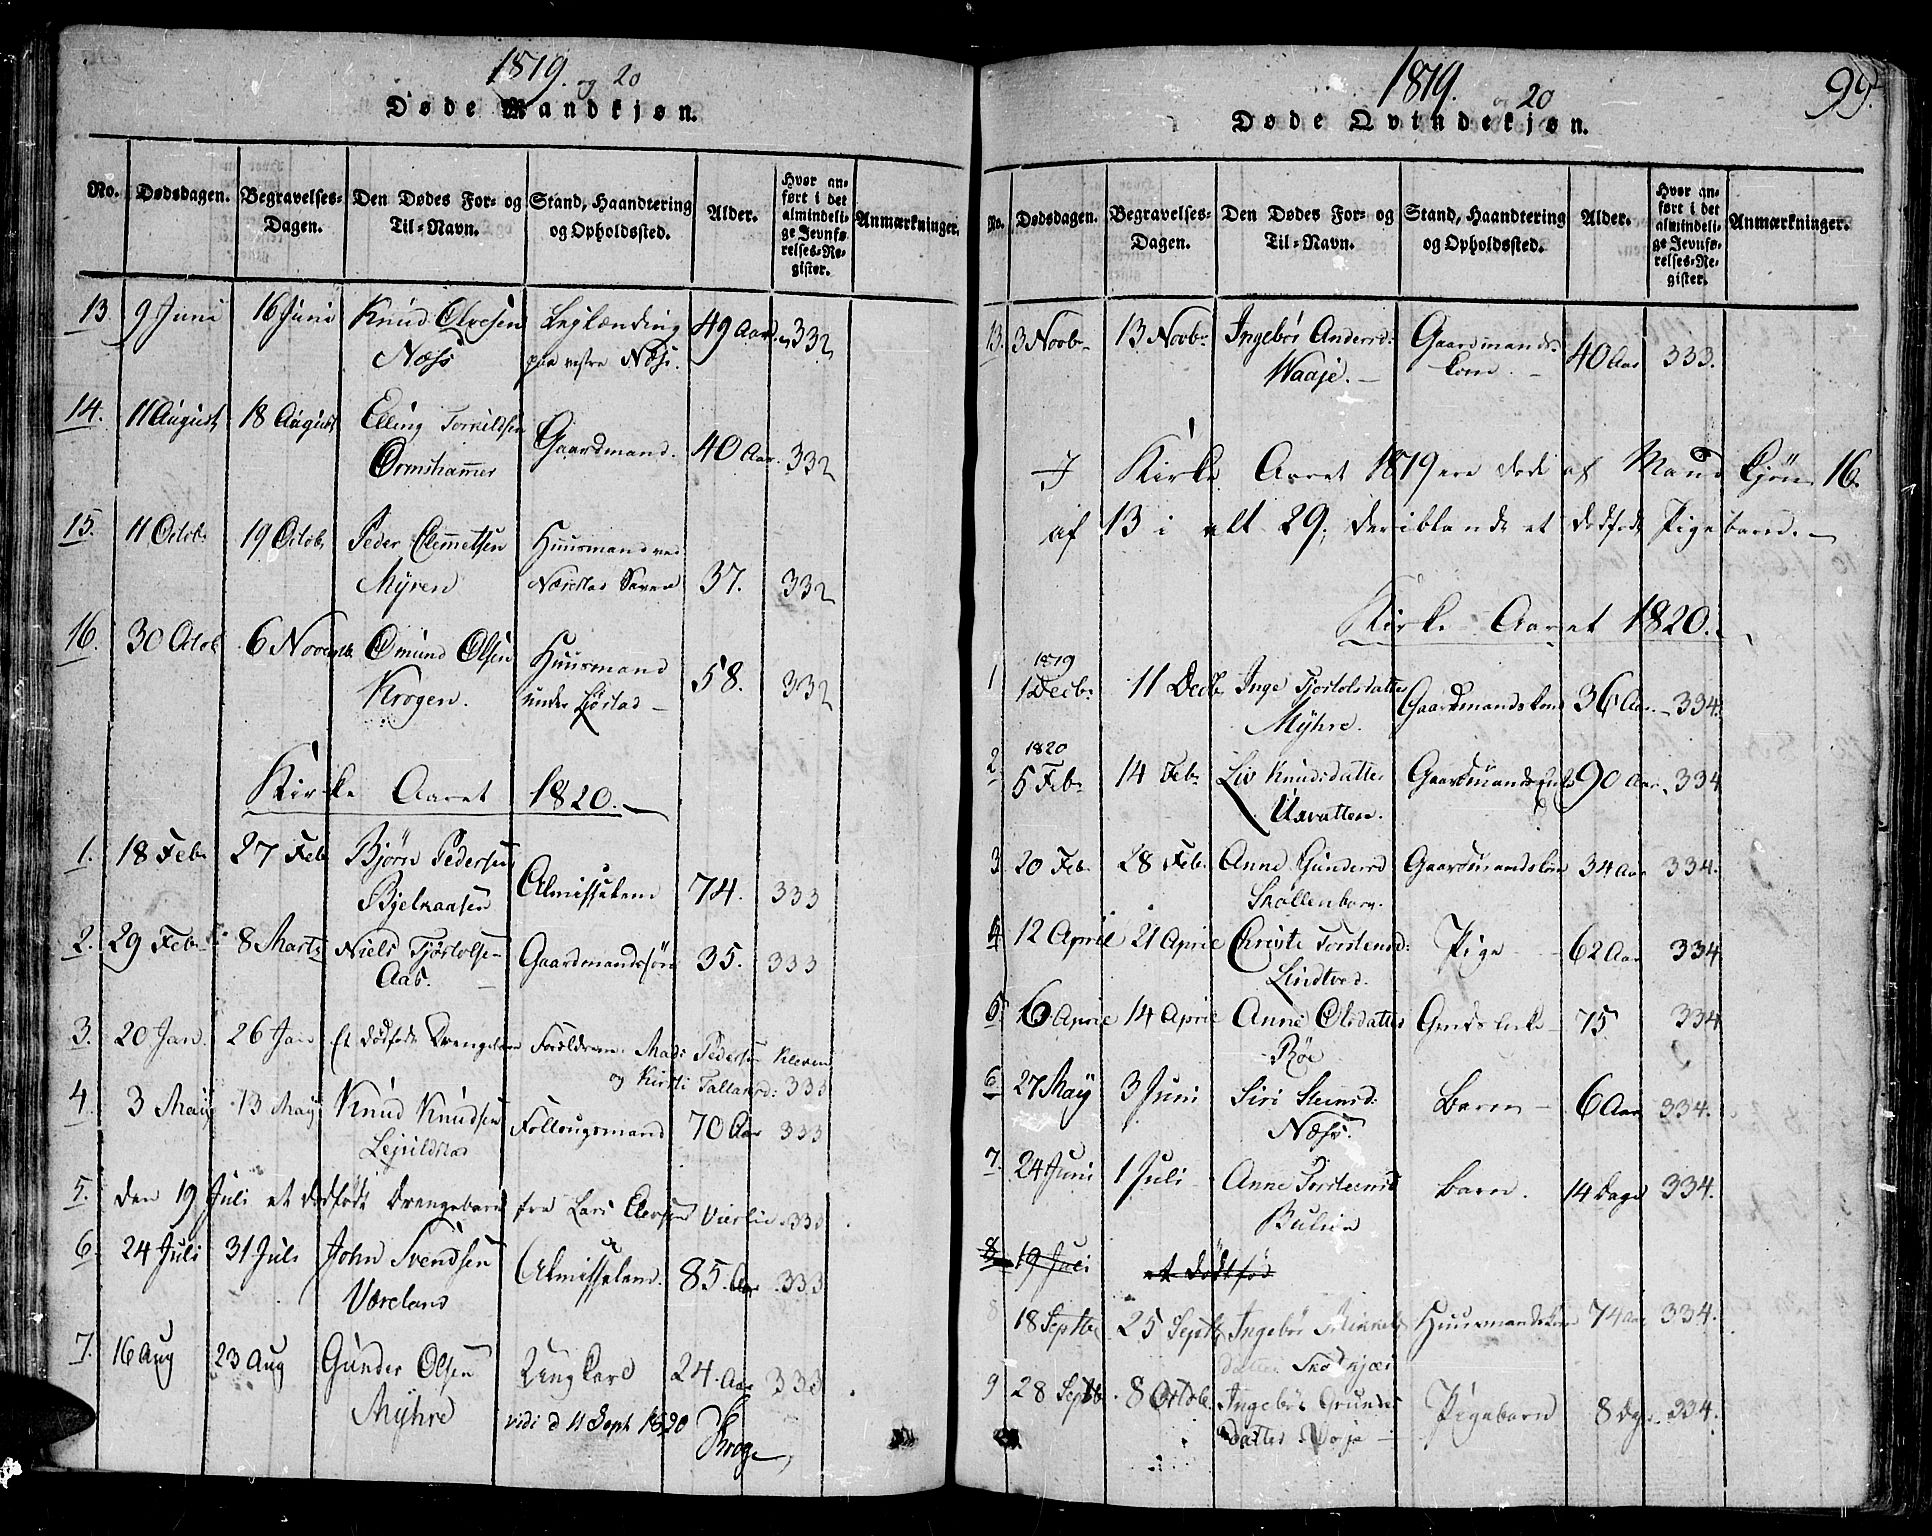 1819. og 20
Døde Mandkjøn.
No. Dødsdagen. Begravelses-Dagen. Den Dødes For- og Til-Navn. Stand, Haandtering og Opholdssted. Alder. Hvor anført i det almindelige Jevnførelses-Register. Anmærkninger.
13. 9 Juni 16 Juni Knud Olvesen Lejlænding 49 Aar. 332
Næss paa vestre Næss.
14. 11 August 18 August Elling Torkildsen Gaardmand. 40 Aar. 332
Ormshammer
15. 11 Octob. 19 Octob. Peder Clemmetsen Huusmand ved 37. 332
Myren
16. 30 Octob 6 Novemb. Omund Olsen Huusmand 58. 332
Krogen. under
Kirke Aaret 1820.
1. 18 Feb. 27 Feb Bjørn Pedersen Almisselem 74. 333
Bjelkaasen
2. 29 Feb. 8 Marts Niels Tjøstolse- Gaardmandssøn 35. 333
Aas.
3. 20 Jan. 26 Jan Et dødfødt Drengebarn Forældrene: Mads Pedersen Kleven
og Kirsti Tallaksd: 333
4. 3 May 13 May Knud Knudsen Follougsmand 70 Aar 333
5. den 19 Juli et dødfødt Drengebarn fra Lars 333
6. 24 Juli 31 Juli John Svendsen Almisselem. 85. Aar 333
Væreland
7. 16 Aug 23 Aug Gunder Olsen Ungkarl 24. Aar 333
Myhre
vidi d 11 Sept 1820
Krog
1819. og 20
99.
Døde Qvindekjøn.
No. Dødsdagen. Begravelses-Dagen. Den Dødes For- og Til-Navn. Stand, Haandtering og Opholdssted. Alder. Hvor anført i det almindelige Jevnførelses-Register. Anmærkninger.
13. 3 Novb. 13 Novb. Ingebör Andersd: Gaardmands- 40 Aar 333.
Waaje. kone.
I Kirke Aaret 1819 ere døde af Mandkjön 16.
af 13 i alt 29; deriblandt et dødfødt Pigebarn.
Kirke Aaret 1820.
1819
1 1 Decbr 11 Decb. Inge Tjostolsdatter Gaardmandskone 36 Aar. 334.
Myhre.
1820
2 5 Feb. 14 Feb. Liv Knudsdatter 90 Aar. 334
Uxvatten.
3 20 Feb. 28 Feb. Anne Gundersd Gaardmandskone 34 Aar 334.
Skollenborg.
4 12 April 21 April Christe Torstensd: Pige 62 Aar 334
Lindtved.
5. 6 April 14 April Anne Olsdatter 75 334
Røe
6. 27 May 3 Juni Siri Steensd: Barn 6 Aar 334.
Næss.
7. 24 Juni 1 Juli Anne Torsteensd Barn. 14 Dage 334.
8 19 Juli et dødfød
8 18 Septbr 25 Septb Ingebör Huusmandskone 74 Aar 334.
datter
9 28 Septb. 8 Octob. Ingebör Gunders Pigebarn 8 Dage. 334.
datter